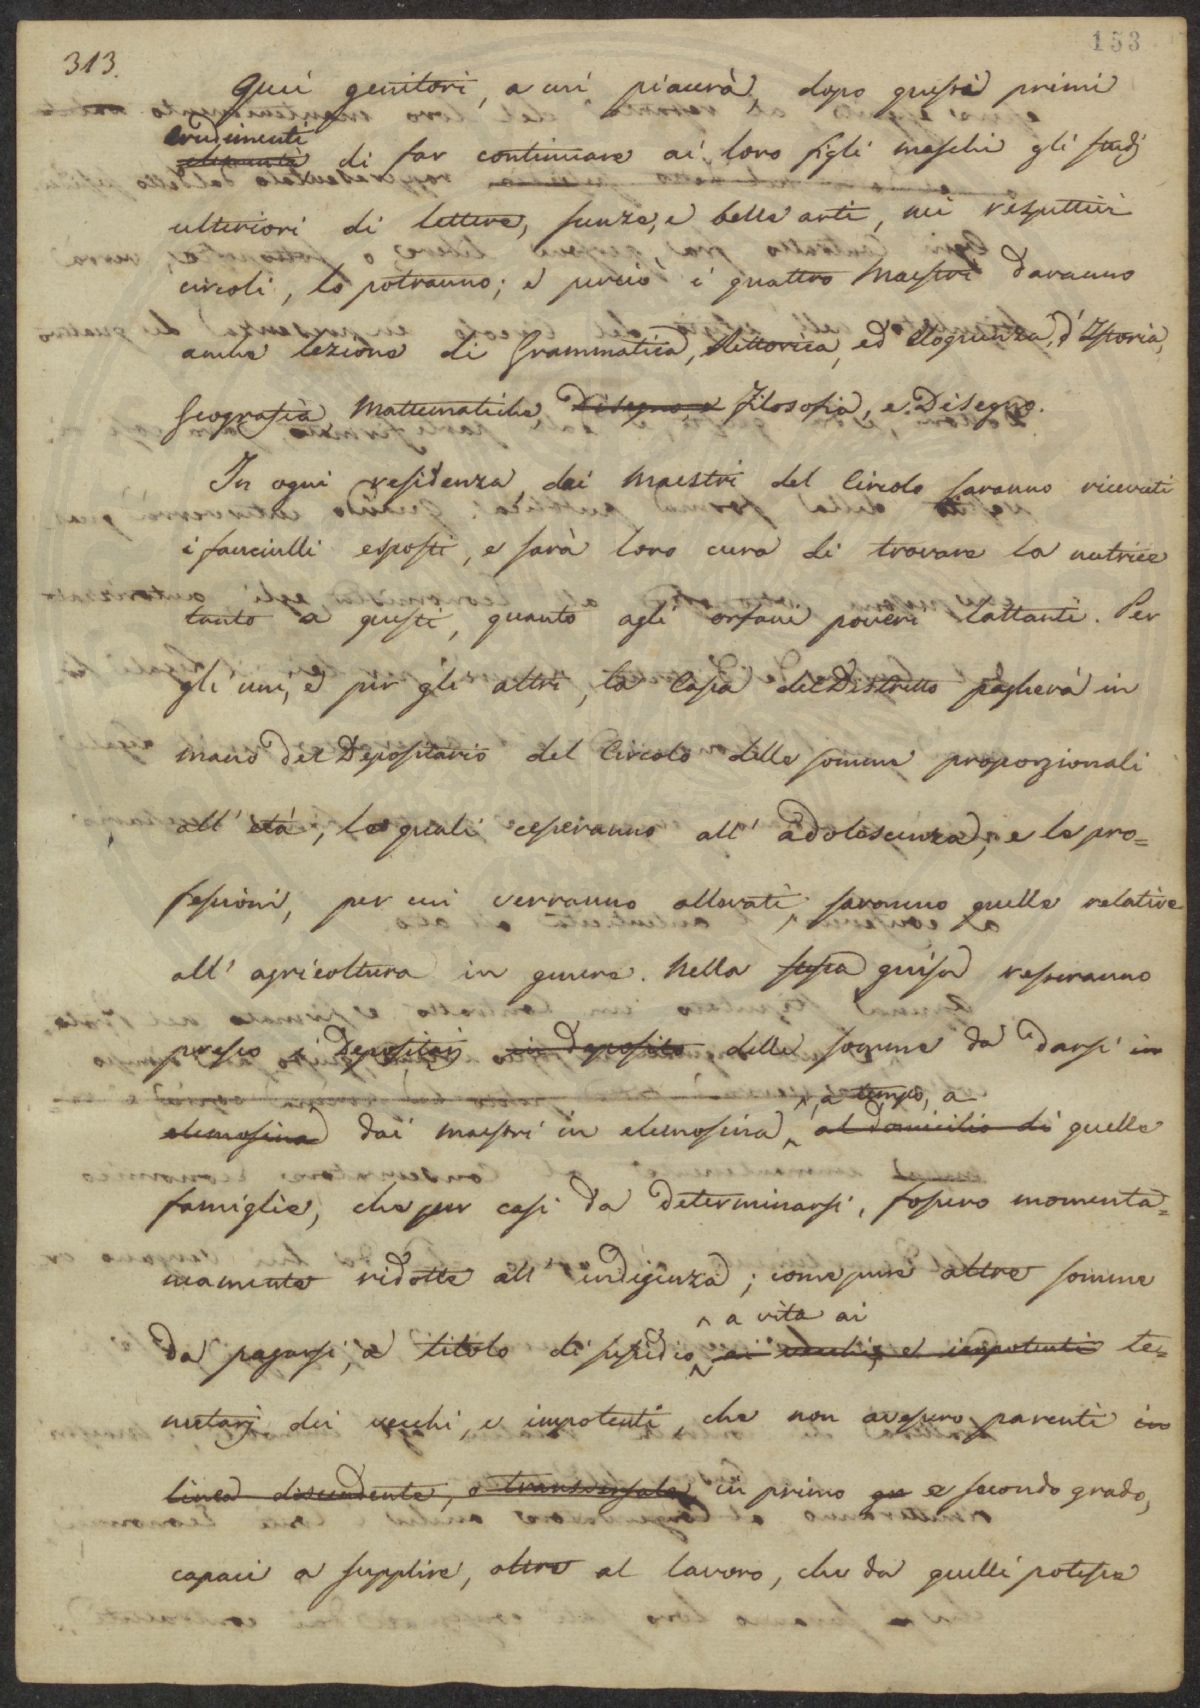 313.
153
Quei genitori, a cui piacerà, dopo questi primi
erudimenti
di far continuare ai loro figli maschi gli studj
ulteriori di lettere, scienze, e belle arti, nei rispettivi
circoli, lo potranno; e perciò i quattro Maestri daranno
anche lezione di Grammatica, Rettorica, ed Eloquenza, d'Istoria,
Geografia, Mattematiche, Disegno, e Filosofia, e Disegno.
In ogni residenza dei Maestri del Circolo saranno ricevuti
i fanciulli esposti, e sarà loro cura di trovare la nutrice
tanto a questi, quanto agli orfani poveri lattanti. Per
gli uni, e per gli altri, la Casa del Distretto pagherà in
mano del Depositario del Circolo delle somme proporzionali
all'età, le quali cesseranno all'adolescenza, e le pro=
fessioni, per cui verranno allevati, saranno quelle relative
all'agricoltura in genere. Nella stessa guisa resteranno
presso i Depositarj in deposito delle somme da darsi in
, a tempo, a
elemosina dai maestri in elemosina, al domicilio di quelle
famiglie, che per casi da determinarsi, fossero momenta=
neamente ridotte all'indigenza; come pure altre somme
a vita ai
da pagarsi, a titolo di sussidio, ai vecchi, e impotenti te=
nutarj dei vecchi, e impotenti, che non avessero parenti in
linea discendente, o transversale, in primo e secondo grado,
capaci a supplire, oltre al lavoro, che da quelli potesse